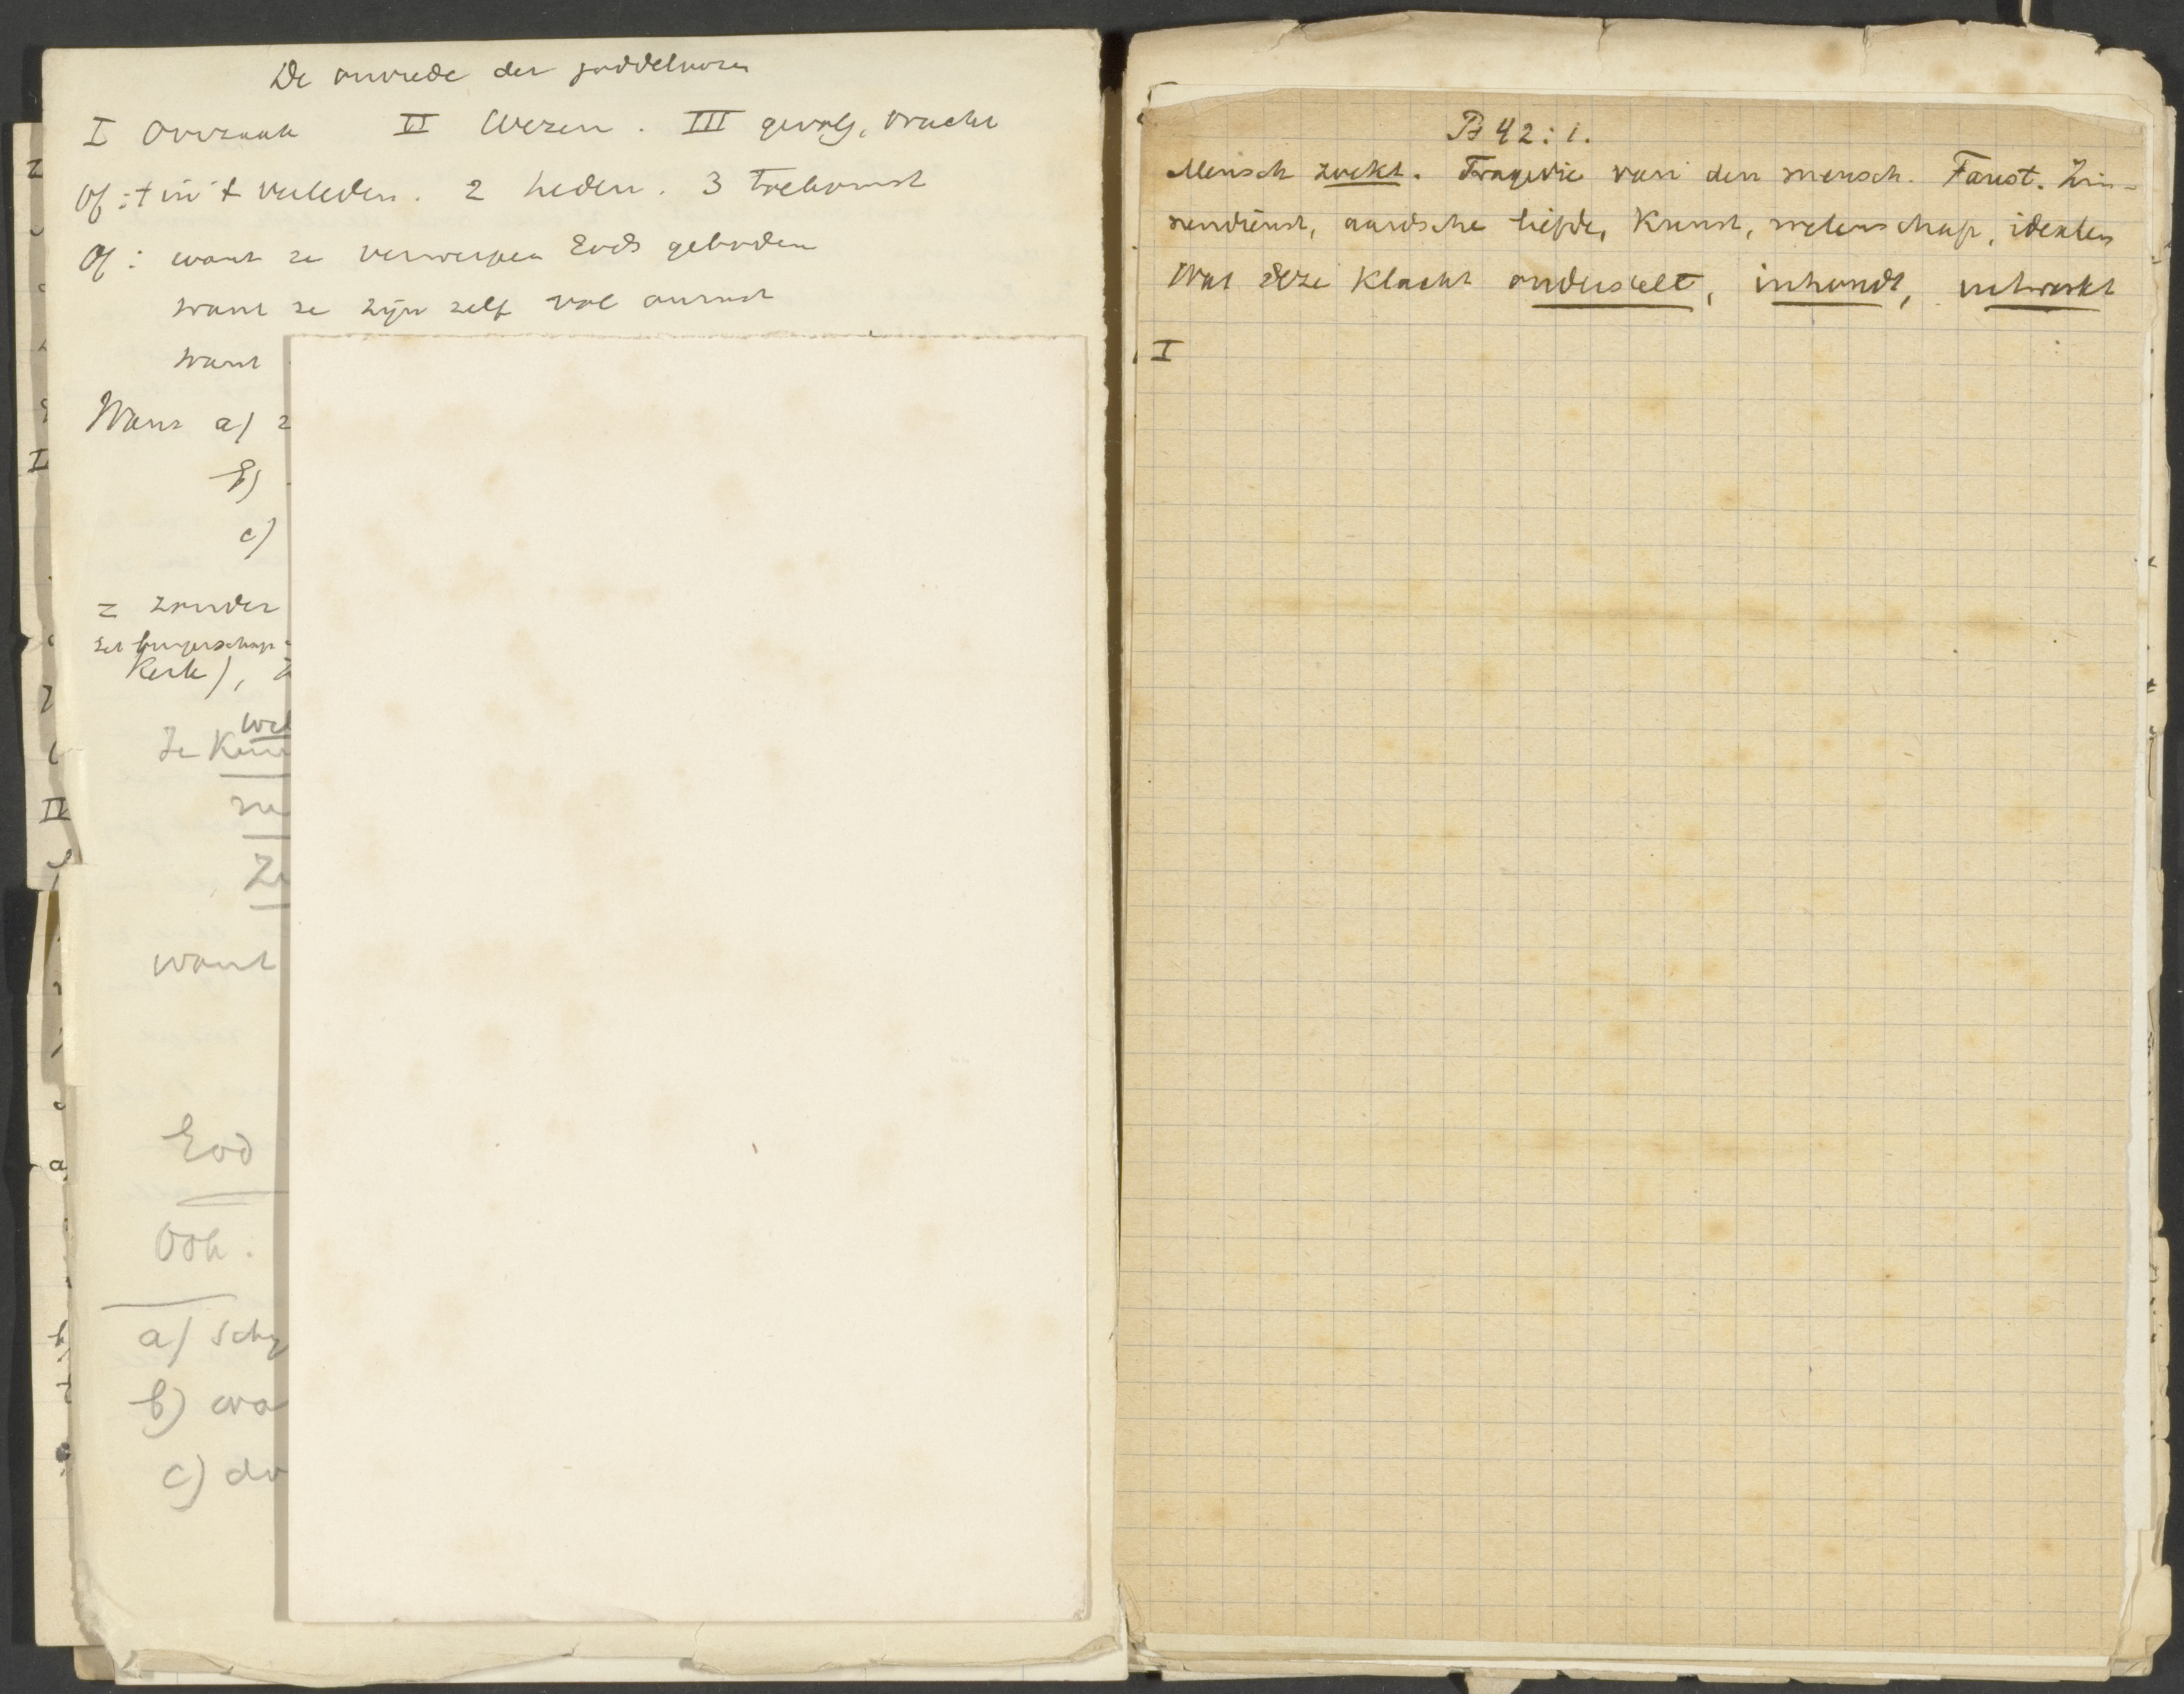 De onvrede der goddeloozen
I Oorzaak II Wezen. III gevolg, vrucht
Of: 1 in 't verleden. 2 heden. 3 toekomst
Of: want ze verwerpen Gods geboden
want ze zijn zelf vol onrust
want
Want a) z
b)
c)
= zonder
burgerschap
Kerk),
Wel
Ze Kenn
Ze
want
God
Ook.
a) Sch
b) wa
c) do
Ps 42:1.
Mensch zoekt. Tragedie van den mensch. Faust. Zin-
nendienst, aardsche liefde, Kunst, wetenschap, idealen
Wat deze Klacht onderstelt, inhoudt, uitwerkt
I